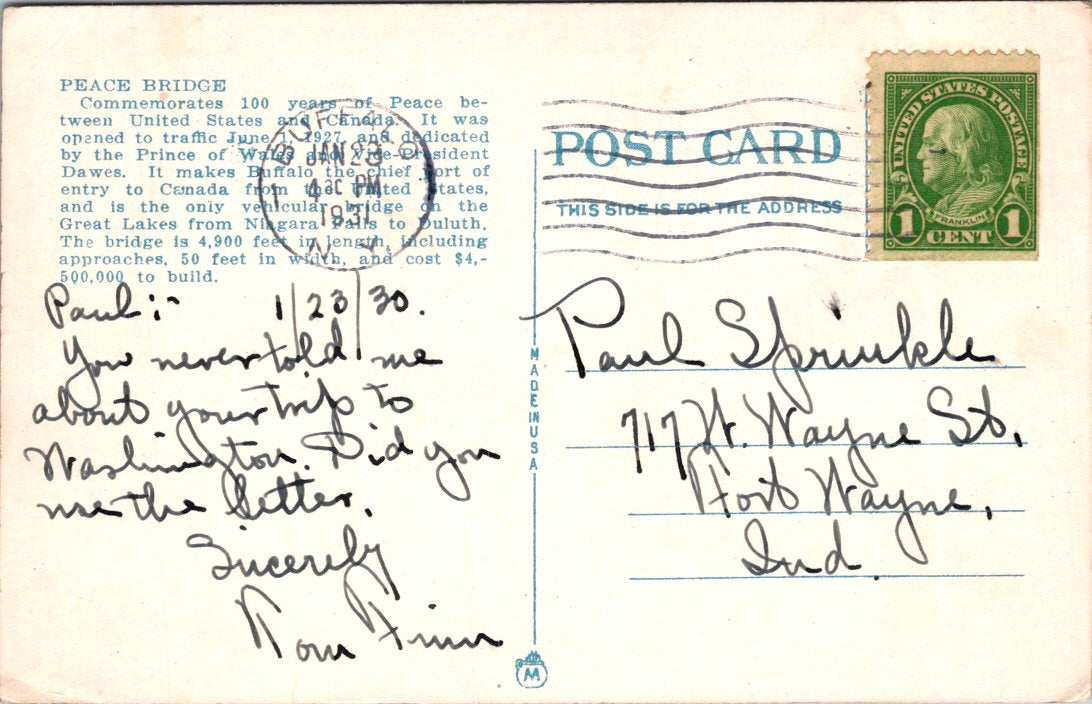 PEACE BRIDGE
Commemorates 100 years of Peace be-
tween United States and Canada. It was
opened to traffic June 1, 1927, and dedicated
by the Prince of Wales and Vice-President
Dawes. It makes Buffalo the chief port of
entry to Canada from the United States,
and is the only vehicular bridge on the
Great Lakes from Niagara Falls to Duluth.
The bridge is 4,900 feet in length, including
approaches, 50 feet in width, and cost $4,-
500,000 to build.
BUFFALO
JAN 23
4 30 PM
1931
N.Y.
1
POST CARD
THIS SIDE IS FOR THE ADDRESS
UNITED STATES POSTAGE
FRANKLIN
1 CENT 1
Paul:- 1/23/30.
You never told me
about your trip to
Washington. Did you
use the letter.
Sincerely
Tom Finn
MADE IN USA
M
Paul Sprinkle
717 W. Wayne St.
Fort Wayne,
Ind.